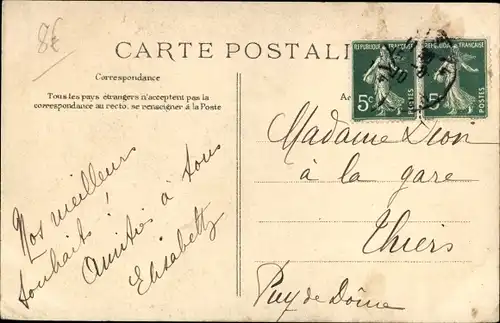 8€
CARTE POSTALE
Correspondance
Tous les pays étrangers n'acceptent pas la
correspondance au recto, se renseigner à la Poste
RÉPUBLIQUE FRANÇAISE
5c
POSTES
RÉPUBLIQUE FRANÇAISE
5c
POSTES
Nos meilleurs
souhaits !
Amitiés à tous
Elisabeth
Madame Dion
à la gare
Thiers
Puy de Dôme